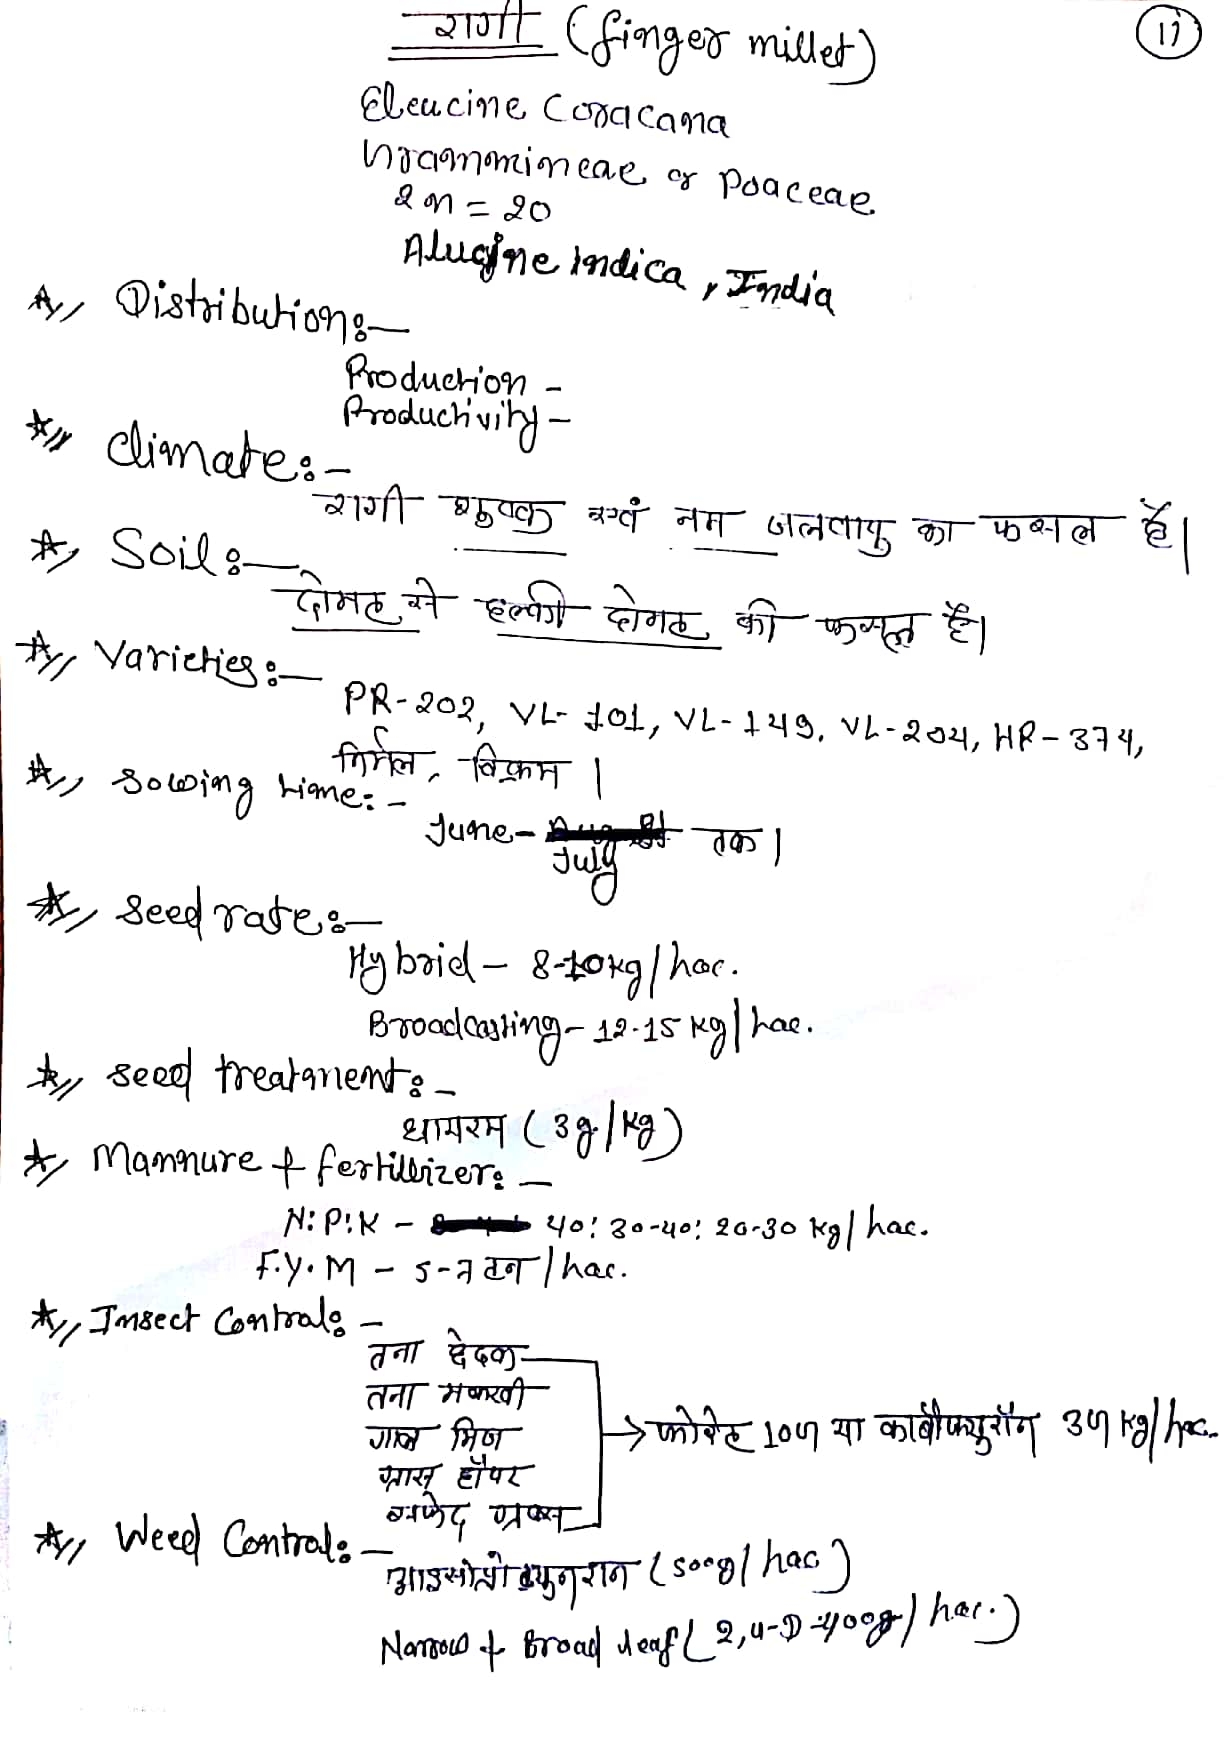 रागी (finger millet)
17
Eleucine Coracana
Grammineae or Poaceae
2n = 20
Alucine Indica, India
A// Distribution:-
Production -
Productivity -
climate:-
रागी शुष्क एवं नम जलवायु का फसल है।
Soil:-
दोमट से हल्की दोमट की फसल है।
Varieties:-
PR-202, VL-101, VL-149, VL-204, HR-374,
निर्मल, विक्रम।
Sowing time:-
June- July तक।
Seed rate:-
Hybrid - 8-10kg/hac.
Broadcasting - 12-15 kg/hac.
seed treatment:-
थायरम (3g/kg)
Mannure & fertillizer:-
N:P:K - 40:30-40:20-30 kg/hac.
F.Y.M - 5-7 टन/hac.
Insect Control:-
तना छेदक
तना मक्खी
गाल मिज
ग्रास हॉपर
सफेद ग्रब्स
→ फोरेट 10G या कार्बोफ्युरॉन 3G kg/hac.
Weed Control:-
आइसोप्रोट्युनरान (500g/hac)
Narrow & Broad leaf (2,4-D-400g/hac.)